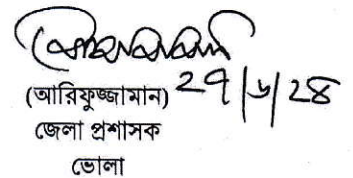 (আরিফুজ্জামান) ২৭/৬/২৪
জেলা প্রশাসক
ভোলা